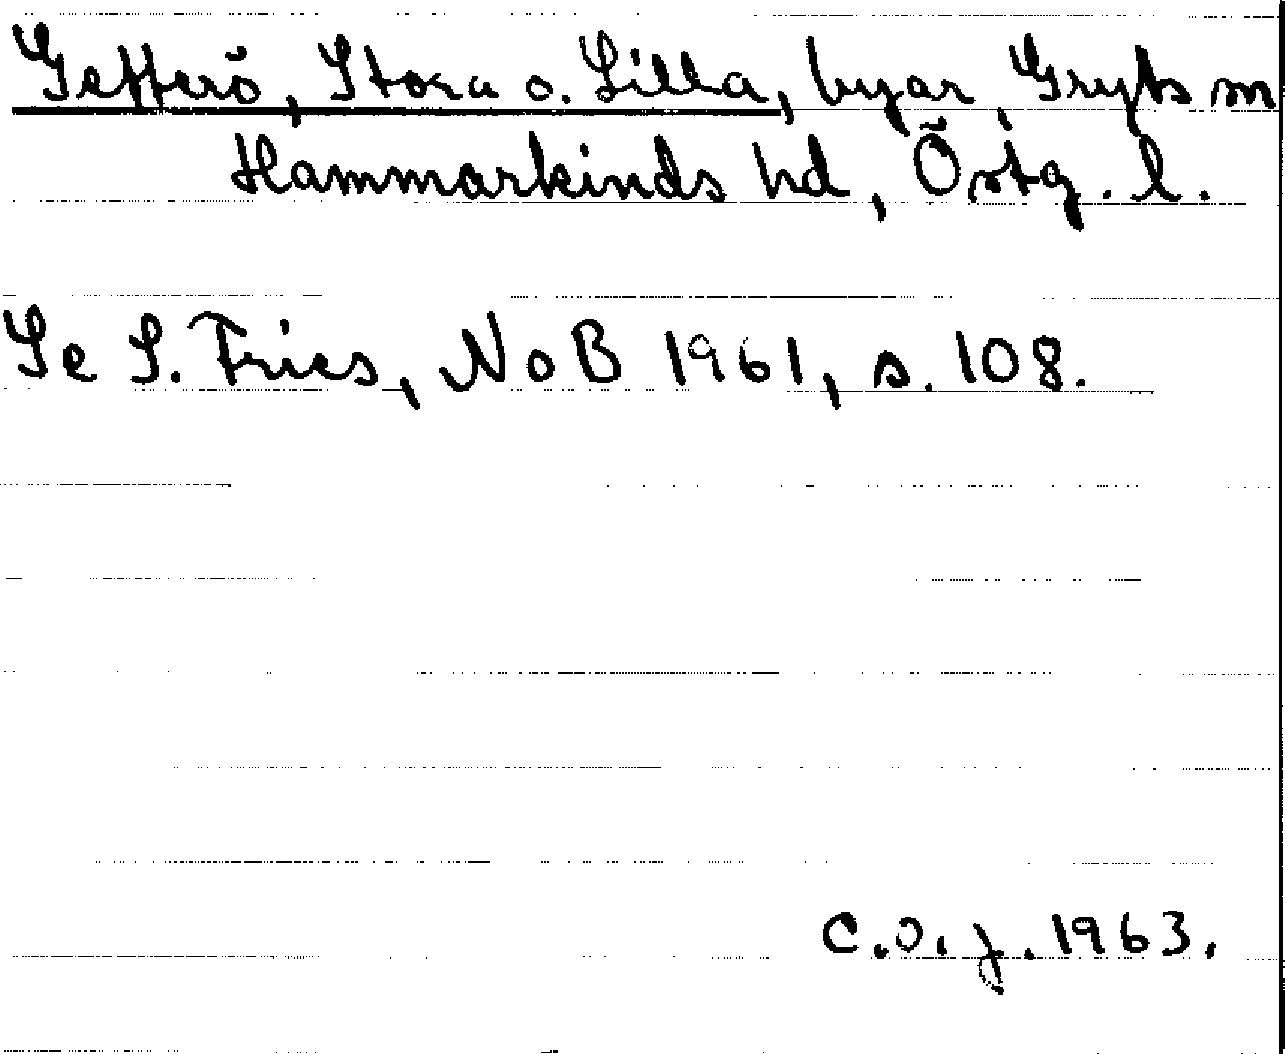 Getterö, Stora o. Lilla, byar, Gryts sn
Hammarkinds hd, Östg. l.
Se S. Fries, NoB 1961, s. 108.
C.O.f. 1963.